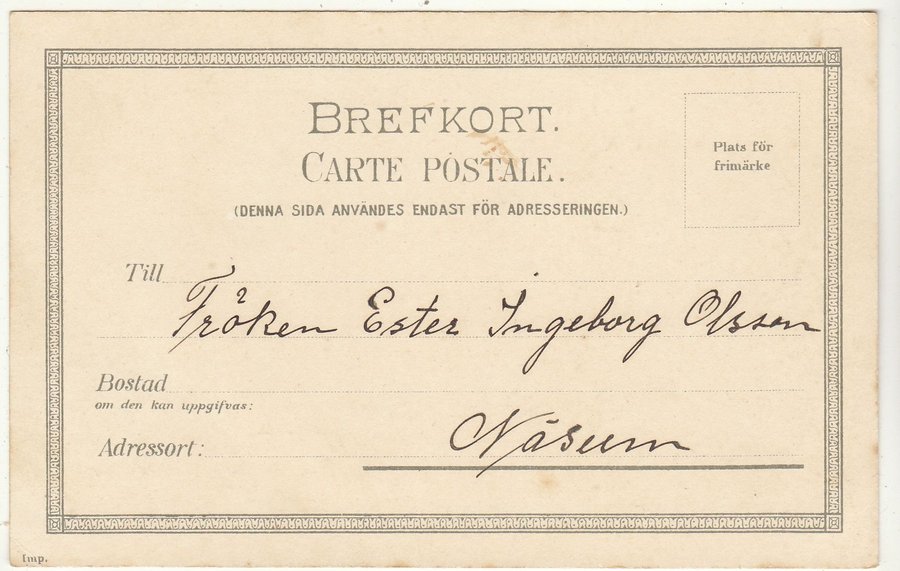 BREFKORT.
CARTE POSTALE.
(DENNA SIDA ANVÄNDES ENDAST FÖR ADRESSERINGEN.)
Plats för
frimärke
Till
Fröken Ester Ingeborg Olsson
Bostad
om den kan uppgifvas:
Adressort:
Näsum
Imp.